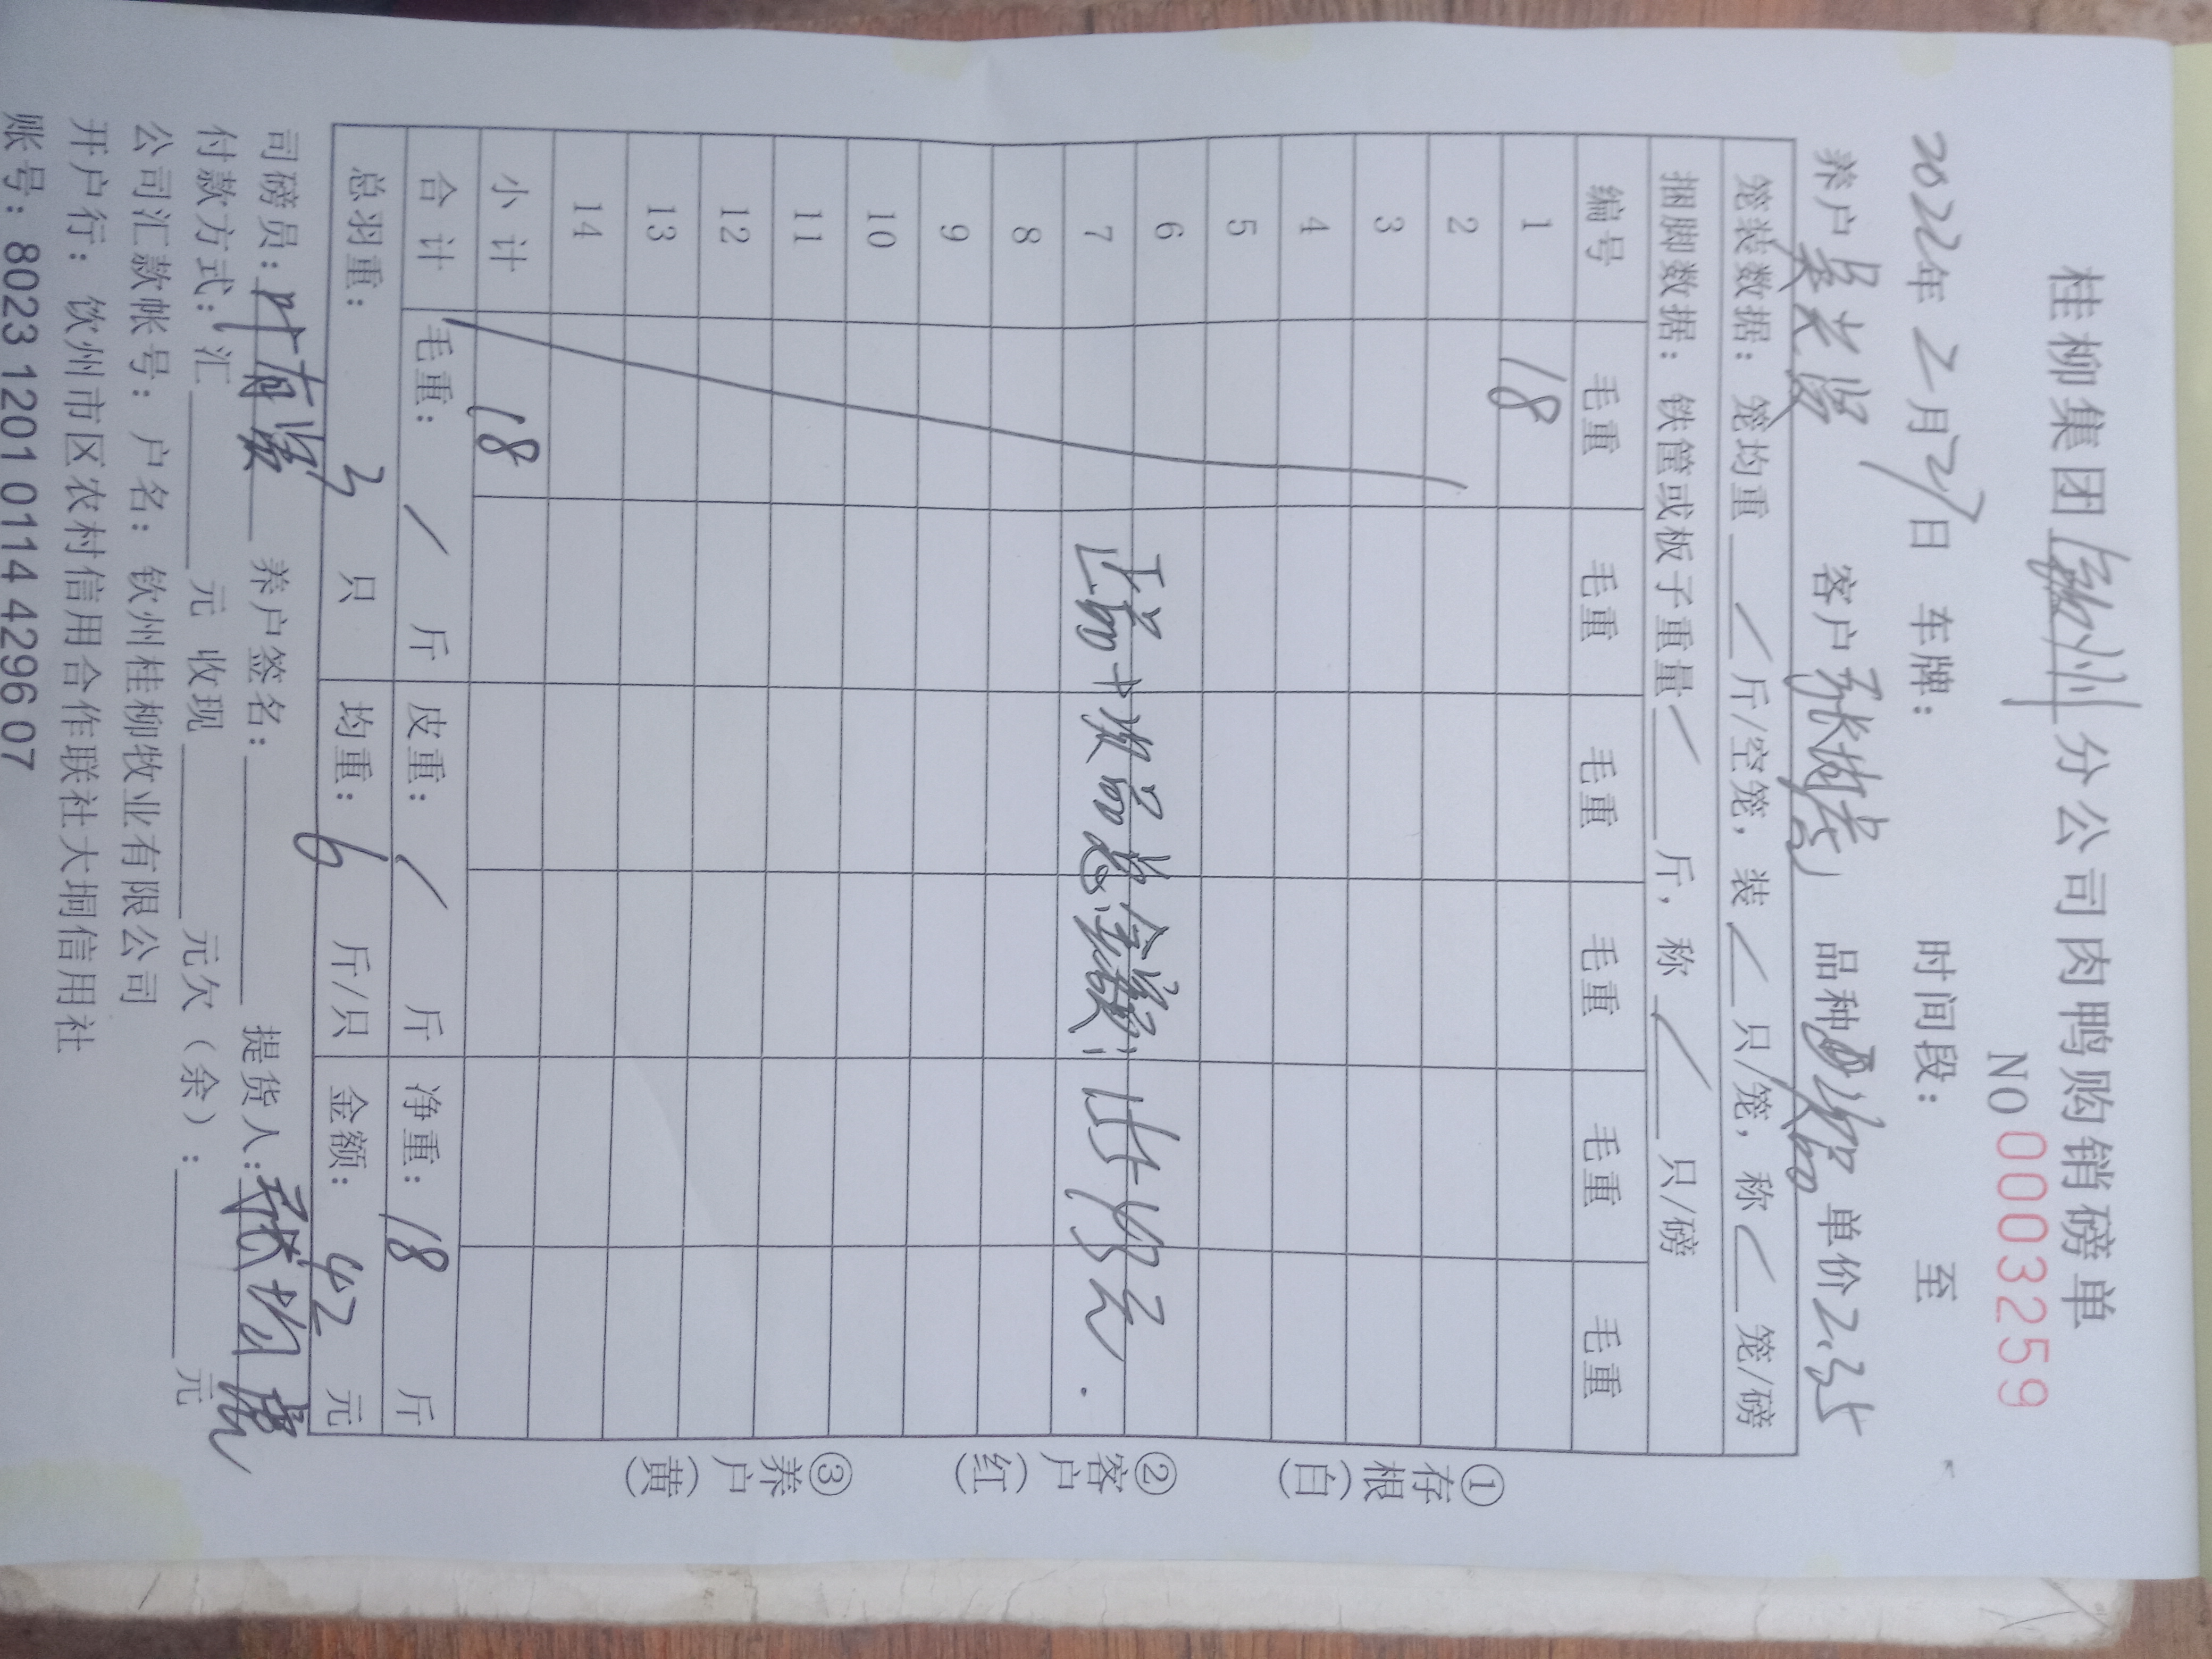 桂柳集团钦州分公司肉鸭购销磅单
NO 0003259
2022年2月27日 车牌： 时间段： 至
养户 客户 品种 单价2.35
笼装数据：笼均重/斤/空笼，装/只/笼，称/笼/磅
捆脚数据：铁筐或板子重量/斤，称/只/磅
编号 毛重 毛重 毛重 毛重 毛重 毛重
1 18
2
3
4
5
6
7 正品+次品总金额：
8
9
10
11
12
13
14
小计 18
合计 毛重：/斤 皮重：/斤 净重：18斤
总羽重：3只 均重：6斤/只 金额：42元
司磅员： 养户签名： 提货人：
付款方式：汇 元 收现 元欠（余）： 元
公司汇款帐号：户名：钦州桂柳牧业有限公司
开户行：钦州市区农村信用合作联社大垌信用社
账号：8023 1201 0114 4296 07
①存根（白）
②客户（红）
③养户（黄）